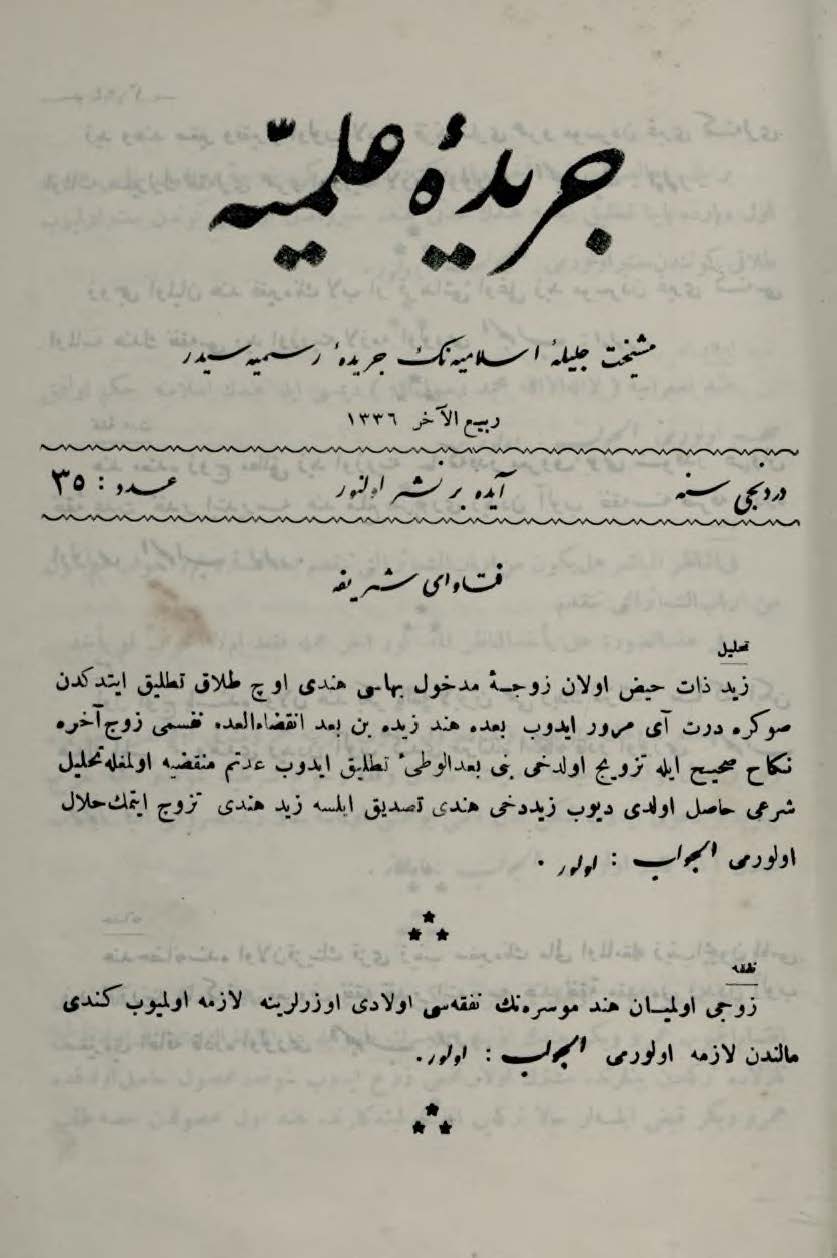 جريدهٔ علميّه
مشيخت جليلهٔ اسلاميه‌نك جريدهٔ رسميه‌سيدر
ربيع الآخر ١٣٣٦
دردنجى سنه
آيده بر نشر اولنور
عدد : ٣٥
فتاواى شريفه
تحليل
زيد ذات حيض اولان زوجهٔ مدخول بهاسى هندى اوچ طلاق تطليق ايتدكدن
صوكره درت آى مرور ايدوب بعده هند زيده بن بعد انقضاءالعده نفسمى زوج آخره
نكاح صحيح ايله تزويج اولدخى بنى بعدالوطىٔ تطليق ايدوب عدتم منقضيه اولمغله تحليل
شرعى حاصل اولدى ديوب زيددخى هندى تصديق ايلسه زيد هندى تزوج ايتمك حلال
اولورمى الجواب : اولور .
نفقه
زوجى اولميان هند موسره‌نك نفقه‌سى اولادى اوزرلرينه لازمه اولميوب كندى
مالندن لازمه اولورمى الجواب : اولور .